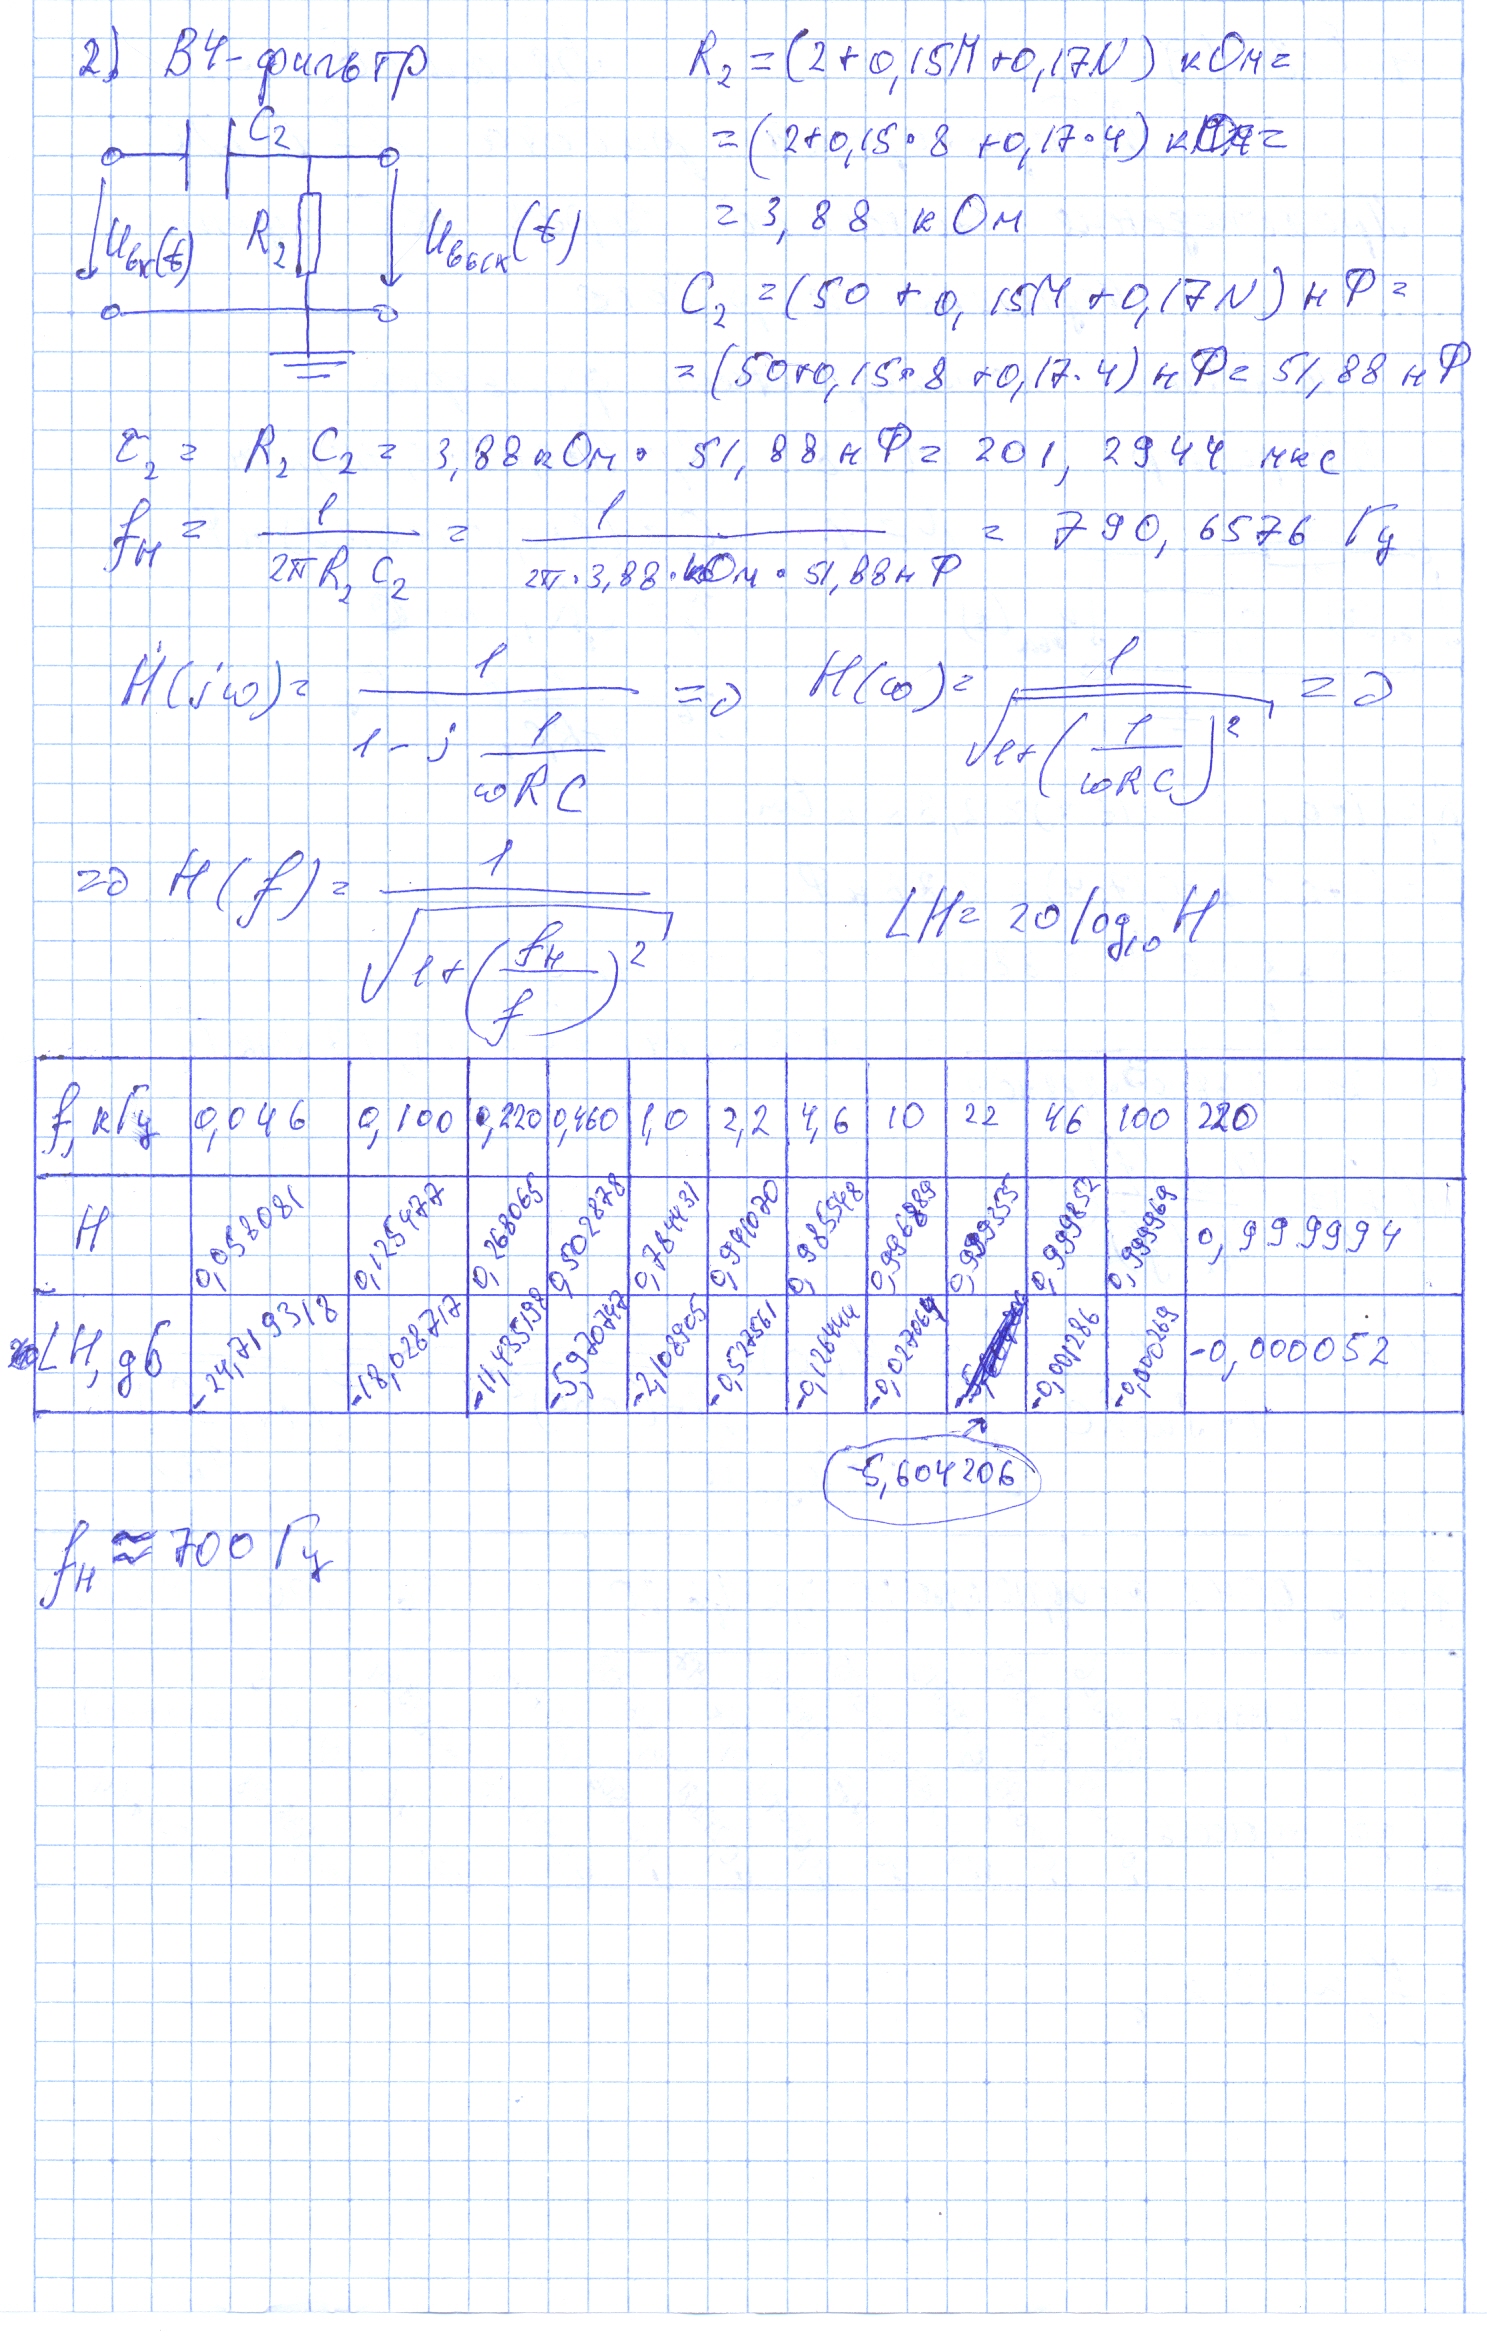 2) ВЧ-фильтр
R₂ = (2+0,15M+0,17N) кОм =
= (2+0,15·8+0,17·4) кОм =
= 3,88 кОм
C₂
Uвх(t)
R₂
Uвых(t)
C₂ = (50+0,15M+0,17N) нФ =
= (50+0,15·8+0,17·4) нФ = 51,88 нФ
τ₂ = R₂C₂ = 3,88 кОм · 51,88 нФ = 201,2944 мкс
fн = 1/(2πR₂C₂) = 1/(2π·3,88·кОм·51,88нФ) = 790,6576 Гц
Ḣ(jω) = 1/(1 - j 1/(ωRC)) => H(ω) = 1/√(1+(1/(ωRC))²) =>
=> H(f) = 1/√(1+(fн/f)²)
LH = 20 log₁₀ H
f, кГц 0,046 0,100 0,220 0,460 1,0 2,2 4,6 10 22 46 100 220
H 0,058081 0,125477 0,268065 0,502878 0,784431 0,941070 0,985548 0,996889 0,999355 0,999852 0,999969 0,999994
LH, дб -24,719318 -18,028717 -11,435192 -5,970747 -2,108905 -0,527561 -0,126444 -0,027064 -0,001286 -0,000269 -0,000052
-5,604206
fн ≈ 700 Гц